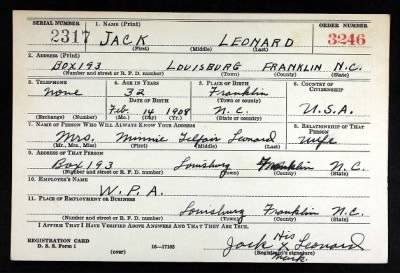 SERIAL NUMBER 1. NAME (Print) ORDER NUMBER
2317 JACK LEONARD 3246
(First) (Middle) (Last)
2. ADDRESS (Print)
BOX 193 LOUISBURG FRANKLIN N.C.
(Number and street or R. F. D. number) (Town) (County) (State)
3. TELEPHONE 4. AGE IN YEARS 5. PLACE OF BIRTH 6. COUNTRY OF CITIZENSHIP
none 32 Franklin
DATE OF BIRTH (Town or county)
Feb 14 1908 N.C. U.S.A.
(Exchange) (Number) (Mo.) (Day) (Yr.) (State or country)
7. NAME OF PERSON WHO WILL ALWAYS KNOW YOUR ADDRESS 8. RELATIONSHIP OF THAT PERSON
Mrs. Minnie Telfair Leonard wife
(Mr., Mrs., Miss) (First) (Middle) (Last)
9. ADDRESS OF THAT PERSON
Box 193 Louisburg Franklin N.C.
(Number and street or R. F. D. number) (Town) (County) (State)
10. EMPLOYER'S NAME
W.P.A.
11. PLACE OF EMPLOYMENT OR BUSINESS
Louisburg Franklin N.C.
(Number and street or R. F. D. number) (Town) (County) (State)
I AFFIRM THAT I HAVE VERIFIED ABOVE ANSWERS AND THAT THEY ARE TRUE.
His
Jack X Leonard
Mark
REGISTRATION CARD
D. S. S. Form 1 (over) 16—17105 (Registrant's signature)